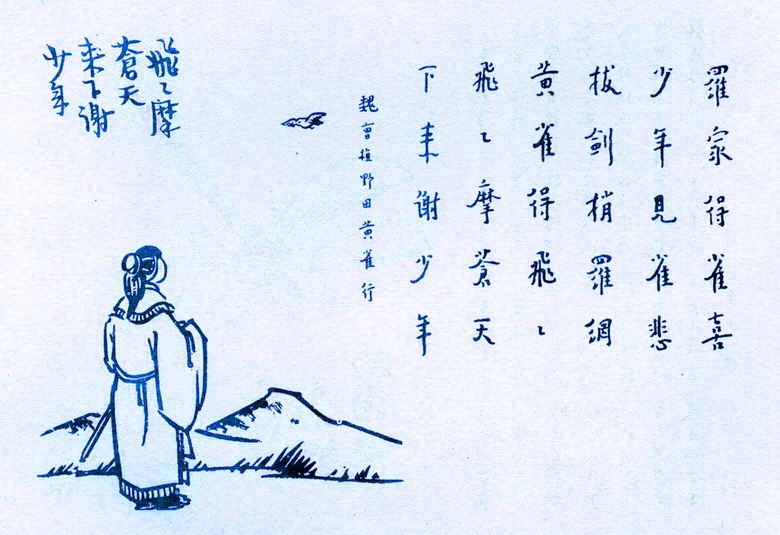 羅家得雀喜
少年見雀悲
拔劍梢羅網
黄雀得飛〻
飛〻摩蒼天
下来謝少年
魏曹植野田黄雀行
飛〻摩
蒼天
来下謝
少年